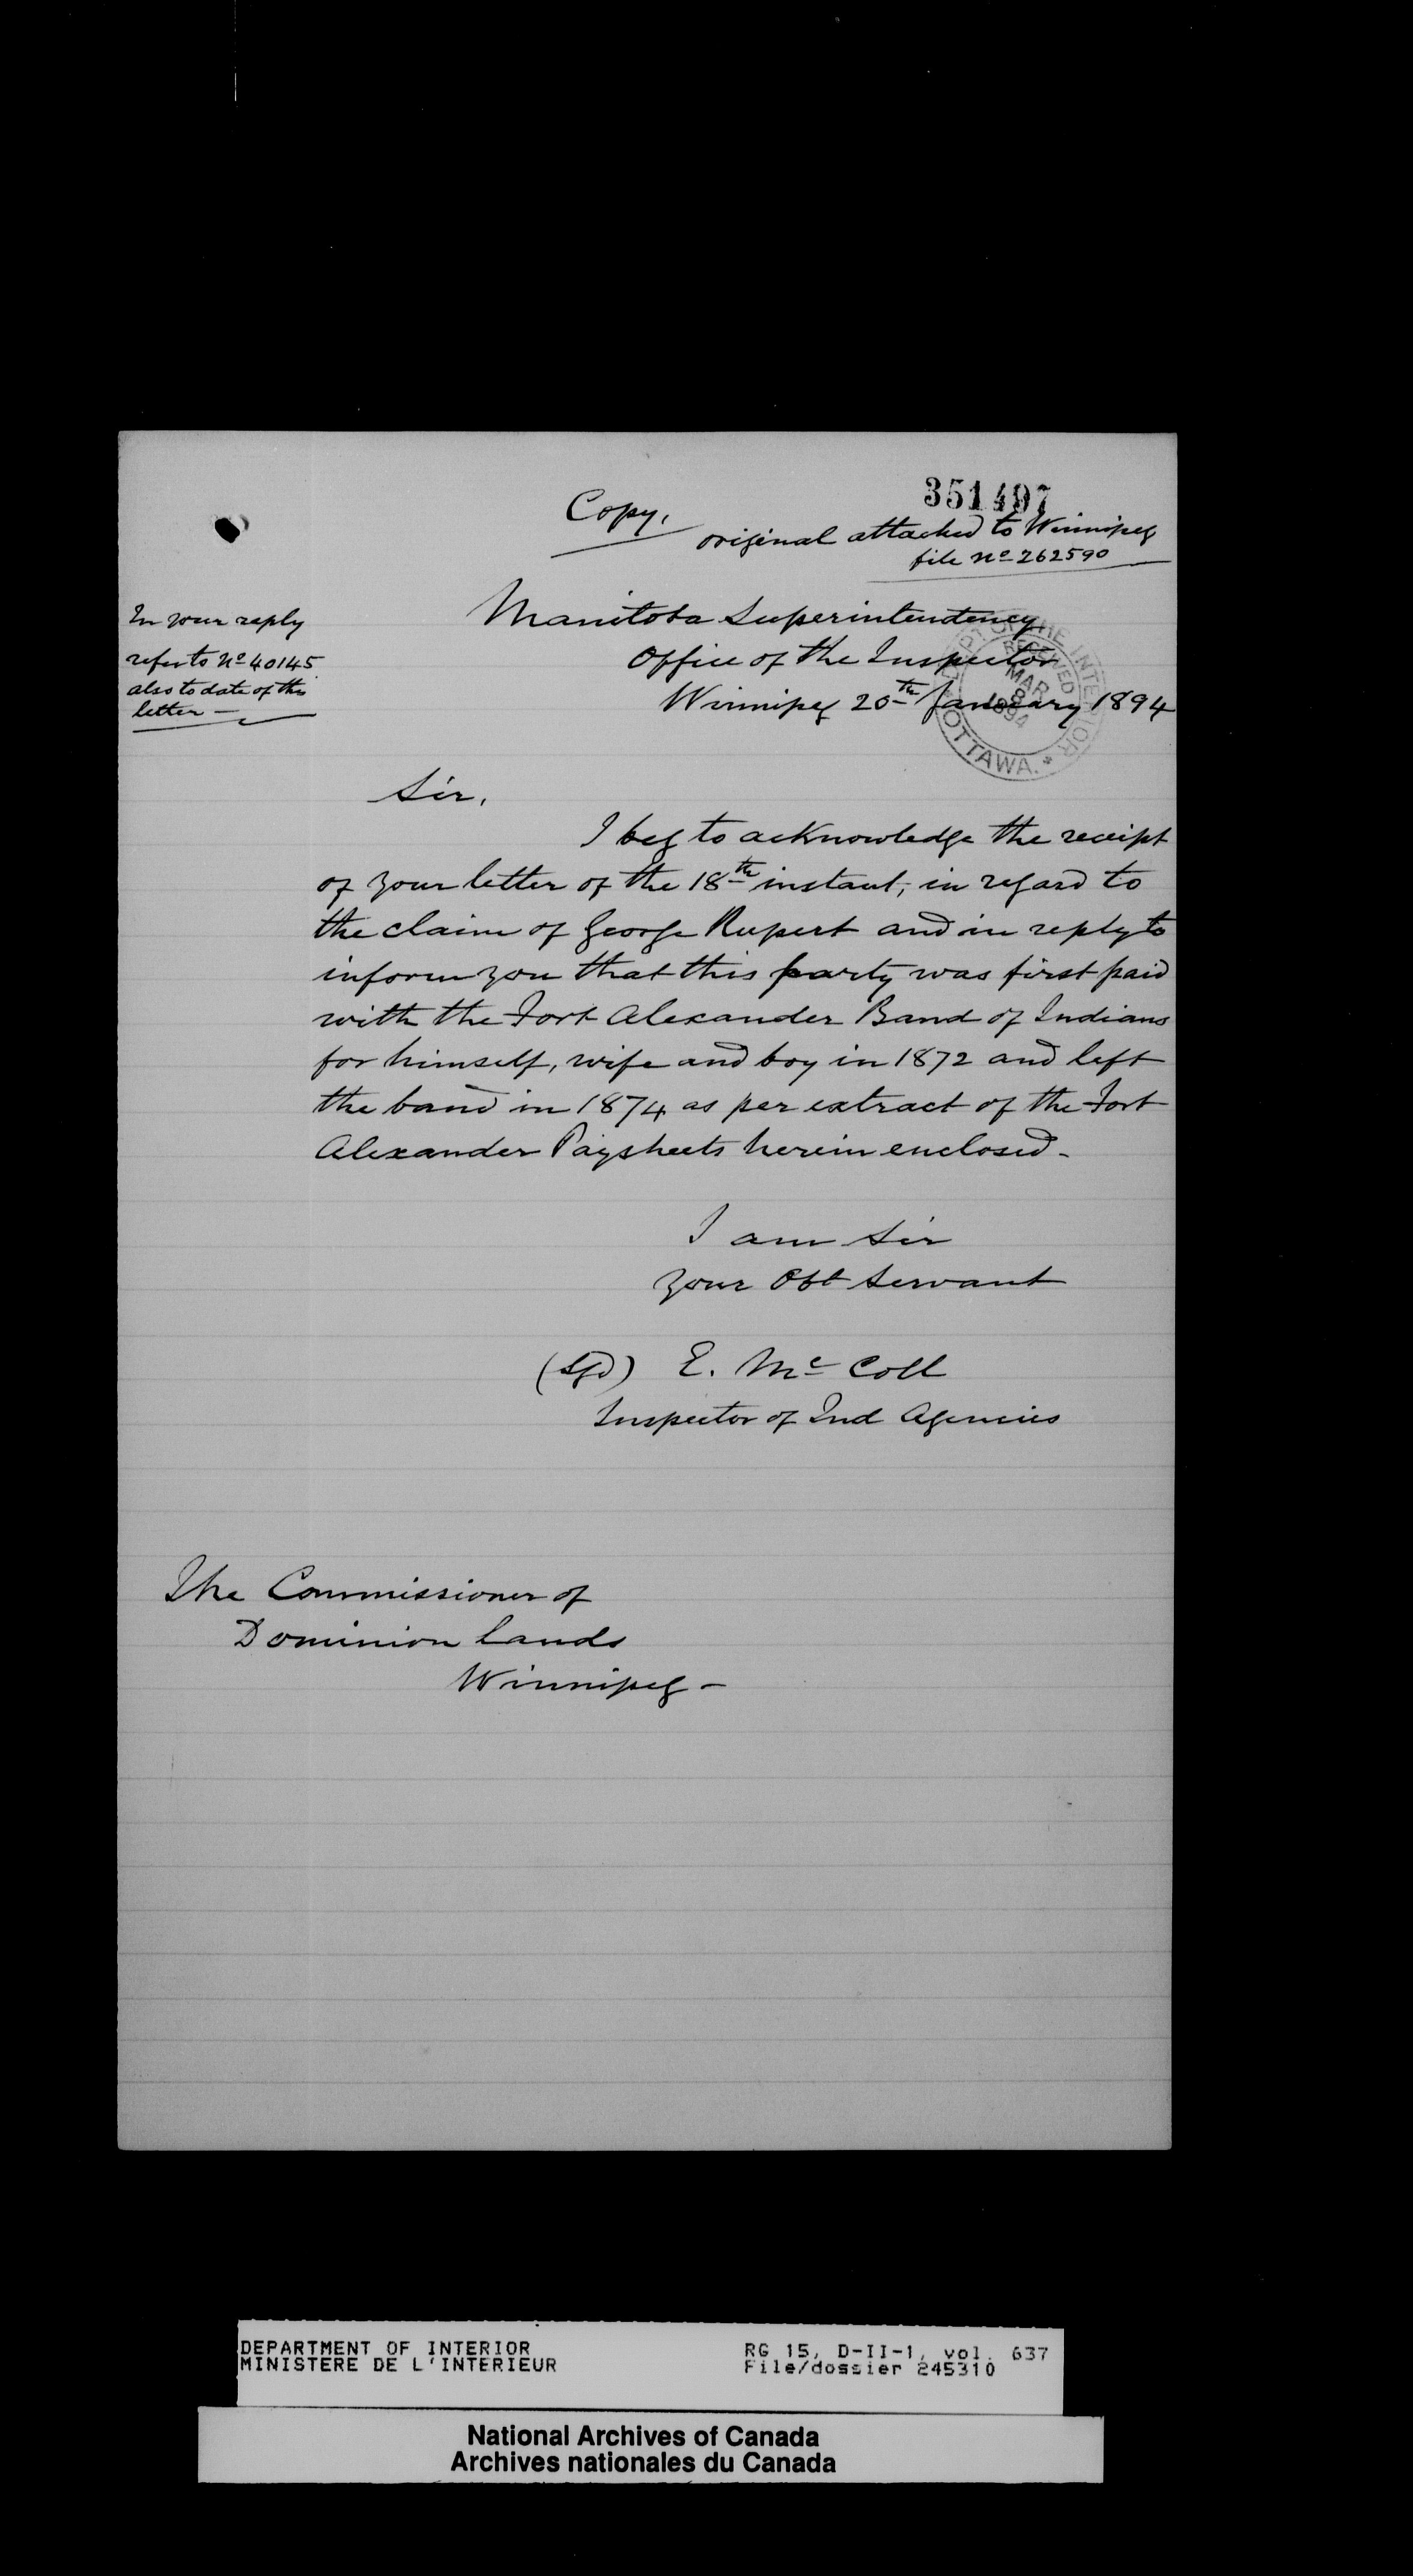 351407
Copy,
original attached to Winnipeg
file No 262590
In your reply
refer to No 40145
also to date of this
letter —
Manitoba Superintendency
Office of the Inspector
Winnipeg 20th January 1894
THE INTERIOR
RECEIVED
MAR
8
1894
OTTAWA.
Sir,
I beg to acknowledge the receipt
of your letter of the 18th instant, in regard to
the claim of George Rupert and in reply to
inform you that this party was first paid
with the Fort Alexander Band of Indians
for himself, wife and boy in 1872 and left
the band in 1874 as per extract of the Fort
Alexander Paysheets herein enclosed -
I am Sir
Your Obt Servant
(Sgd) E. Mc Coll
Inspector of Ind Agencies
The Commissioner of
Dominion Lands
Winnipeg -
DEPARTMENT OF INTERIOR
MINISTERE DE L'INTERIEUR
RG 15, D-II-1, vol. 637
File/dossier 245310
National Archives of Canada
Archives nationales du Canada